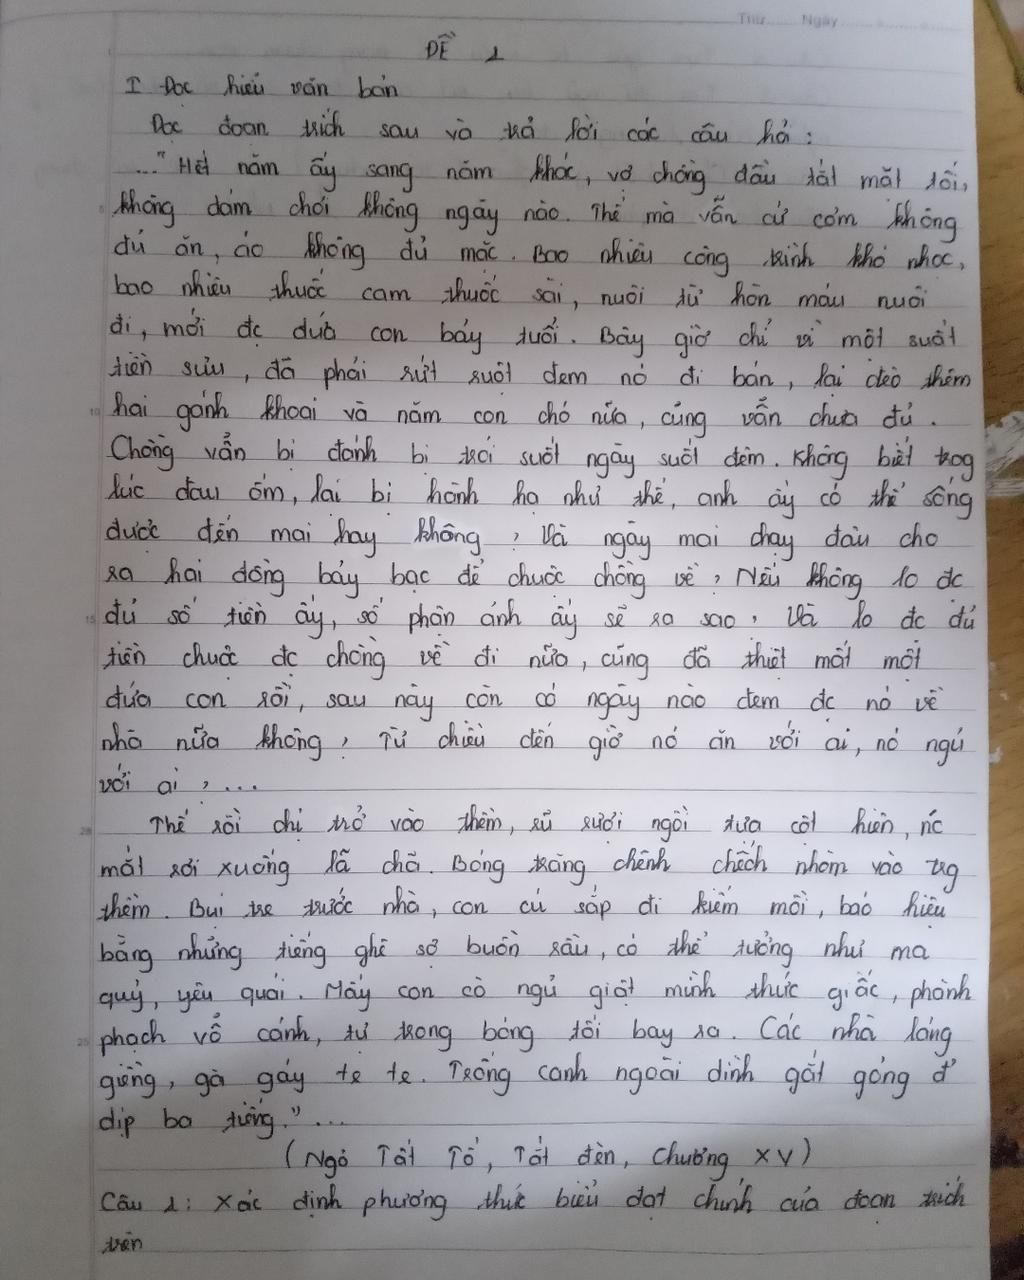 Thứ....... Ngày
ĐỀ 1
I Đọc hiểu văn bản
Đọc đoạn trích sau và trả lời các câu hỏ :
..."Hết năm ấy sang năm khác, vợ chồng đầu tắt mặt tối,
không dám chơi không ngày nào. Thế mà vẫn cứ cơm không
đủ ăn, áo không đủ mặc. Bao nhiêu công trình khó nhọc,
bao nhiêu thuốc cam thuốc sài, nuôi từ hòn máu nuôi
đi, mới đc đứa con bảy tuổi. Bây giờ chỉ vì một suất
tiền sưu, đã phải rứt ruột đem nó đi bán, lại đèo thêm
10
hai gánh khoai và năm con chó nữa, cũng vẫn chưa đủ.
Chồng vẫn bị đánh bị trói suốt ngày suốt đêm. Không biết trog
lúc đau ốm, lại bị hành hạ như thế, anh ấy có thể sống
được đến mai hay không ? Và ngày mai chạy đâu cho
ra hai đồng bảy bạc để chuộc chồng về ? Nếu không lo đc
15
đủ số tiền ấy, số phận ánh ấy sẽ ra sao ? Và lo đc đủ
tiền chuộc đc chồng về đi nữa, cũng đã thiệt mất một
đứa con rồi, sau này còn có ngày nào đem đc nó về
nhà nữa không ? Từ chiều đến giờ nó ăn với ai, nó ngủ
với ai ?...
20
Thế rồi chị trở vào thềm, rũ rượi ngồi tựa cột hiên, nc
mắt rơi xuống lã chã. Bóng trăng chênh chếch nhòm vào trg
thềm. Bụi tre trước nhà, con cú sắp đi kiếm mồi, báo hiệu
bằng những tiếng ghê sợ buồn rầu, có thể tưởng như ma
quỷ, yêu quái. Mấy con cò ngủ giật mình thức giấc, phành
25
phạch vỗ cánh, từ trong bóng tối bay ra. Các nhà láng
giềng, gà gáy te te. Trống canh ngoài đình gắt gỏng đ
dịp ba tiếng."...
(Ngô Tất Tố, Tắt đèn, Chương XV)
Câu 1: Xác định phương thức biểu đạt chính của đoạn trích
trên